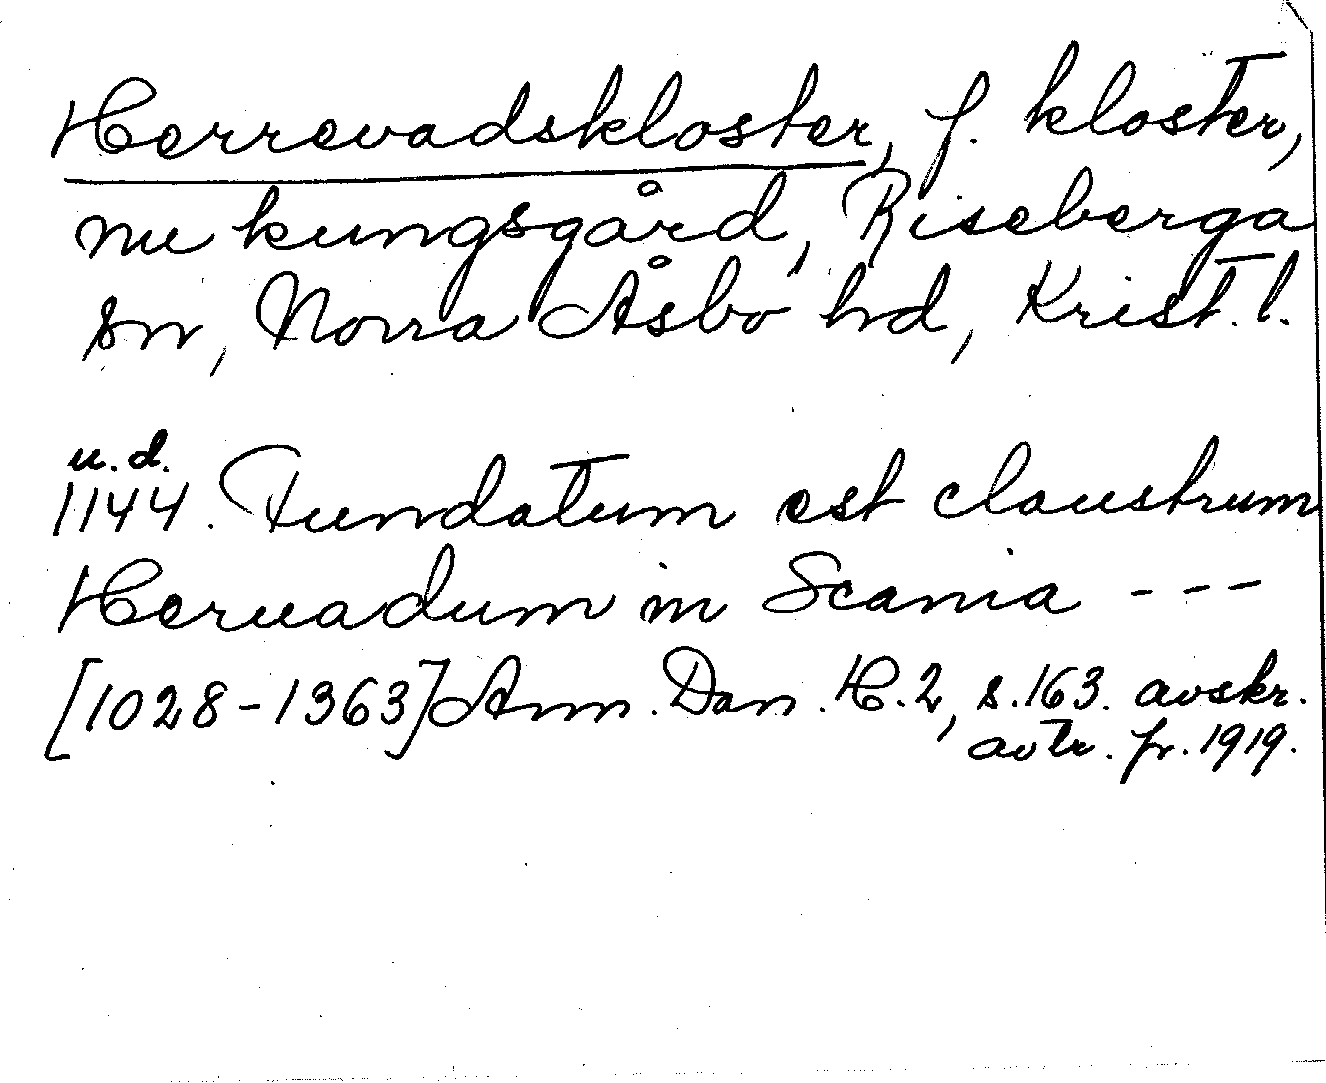 Herrevadskloster, f. kloster,
nu kungsgård, Riseberga
sn, Norra Åsbo hd, Krist. l.
u.d.
1144. Fundatum est claustrum
Heruadum in Scania ---
[1028-1363] Ann. Dan. H.2, s.163. avskr.
avtr. fr. 1919.